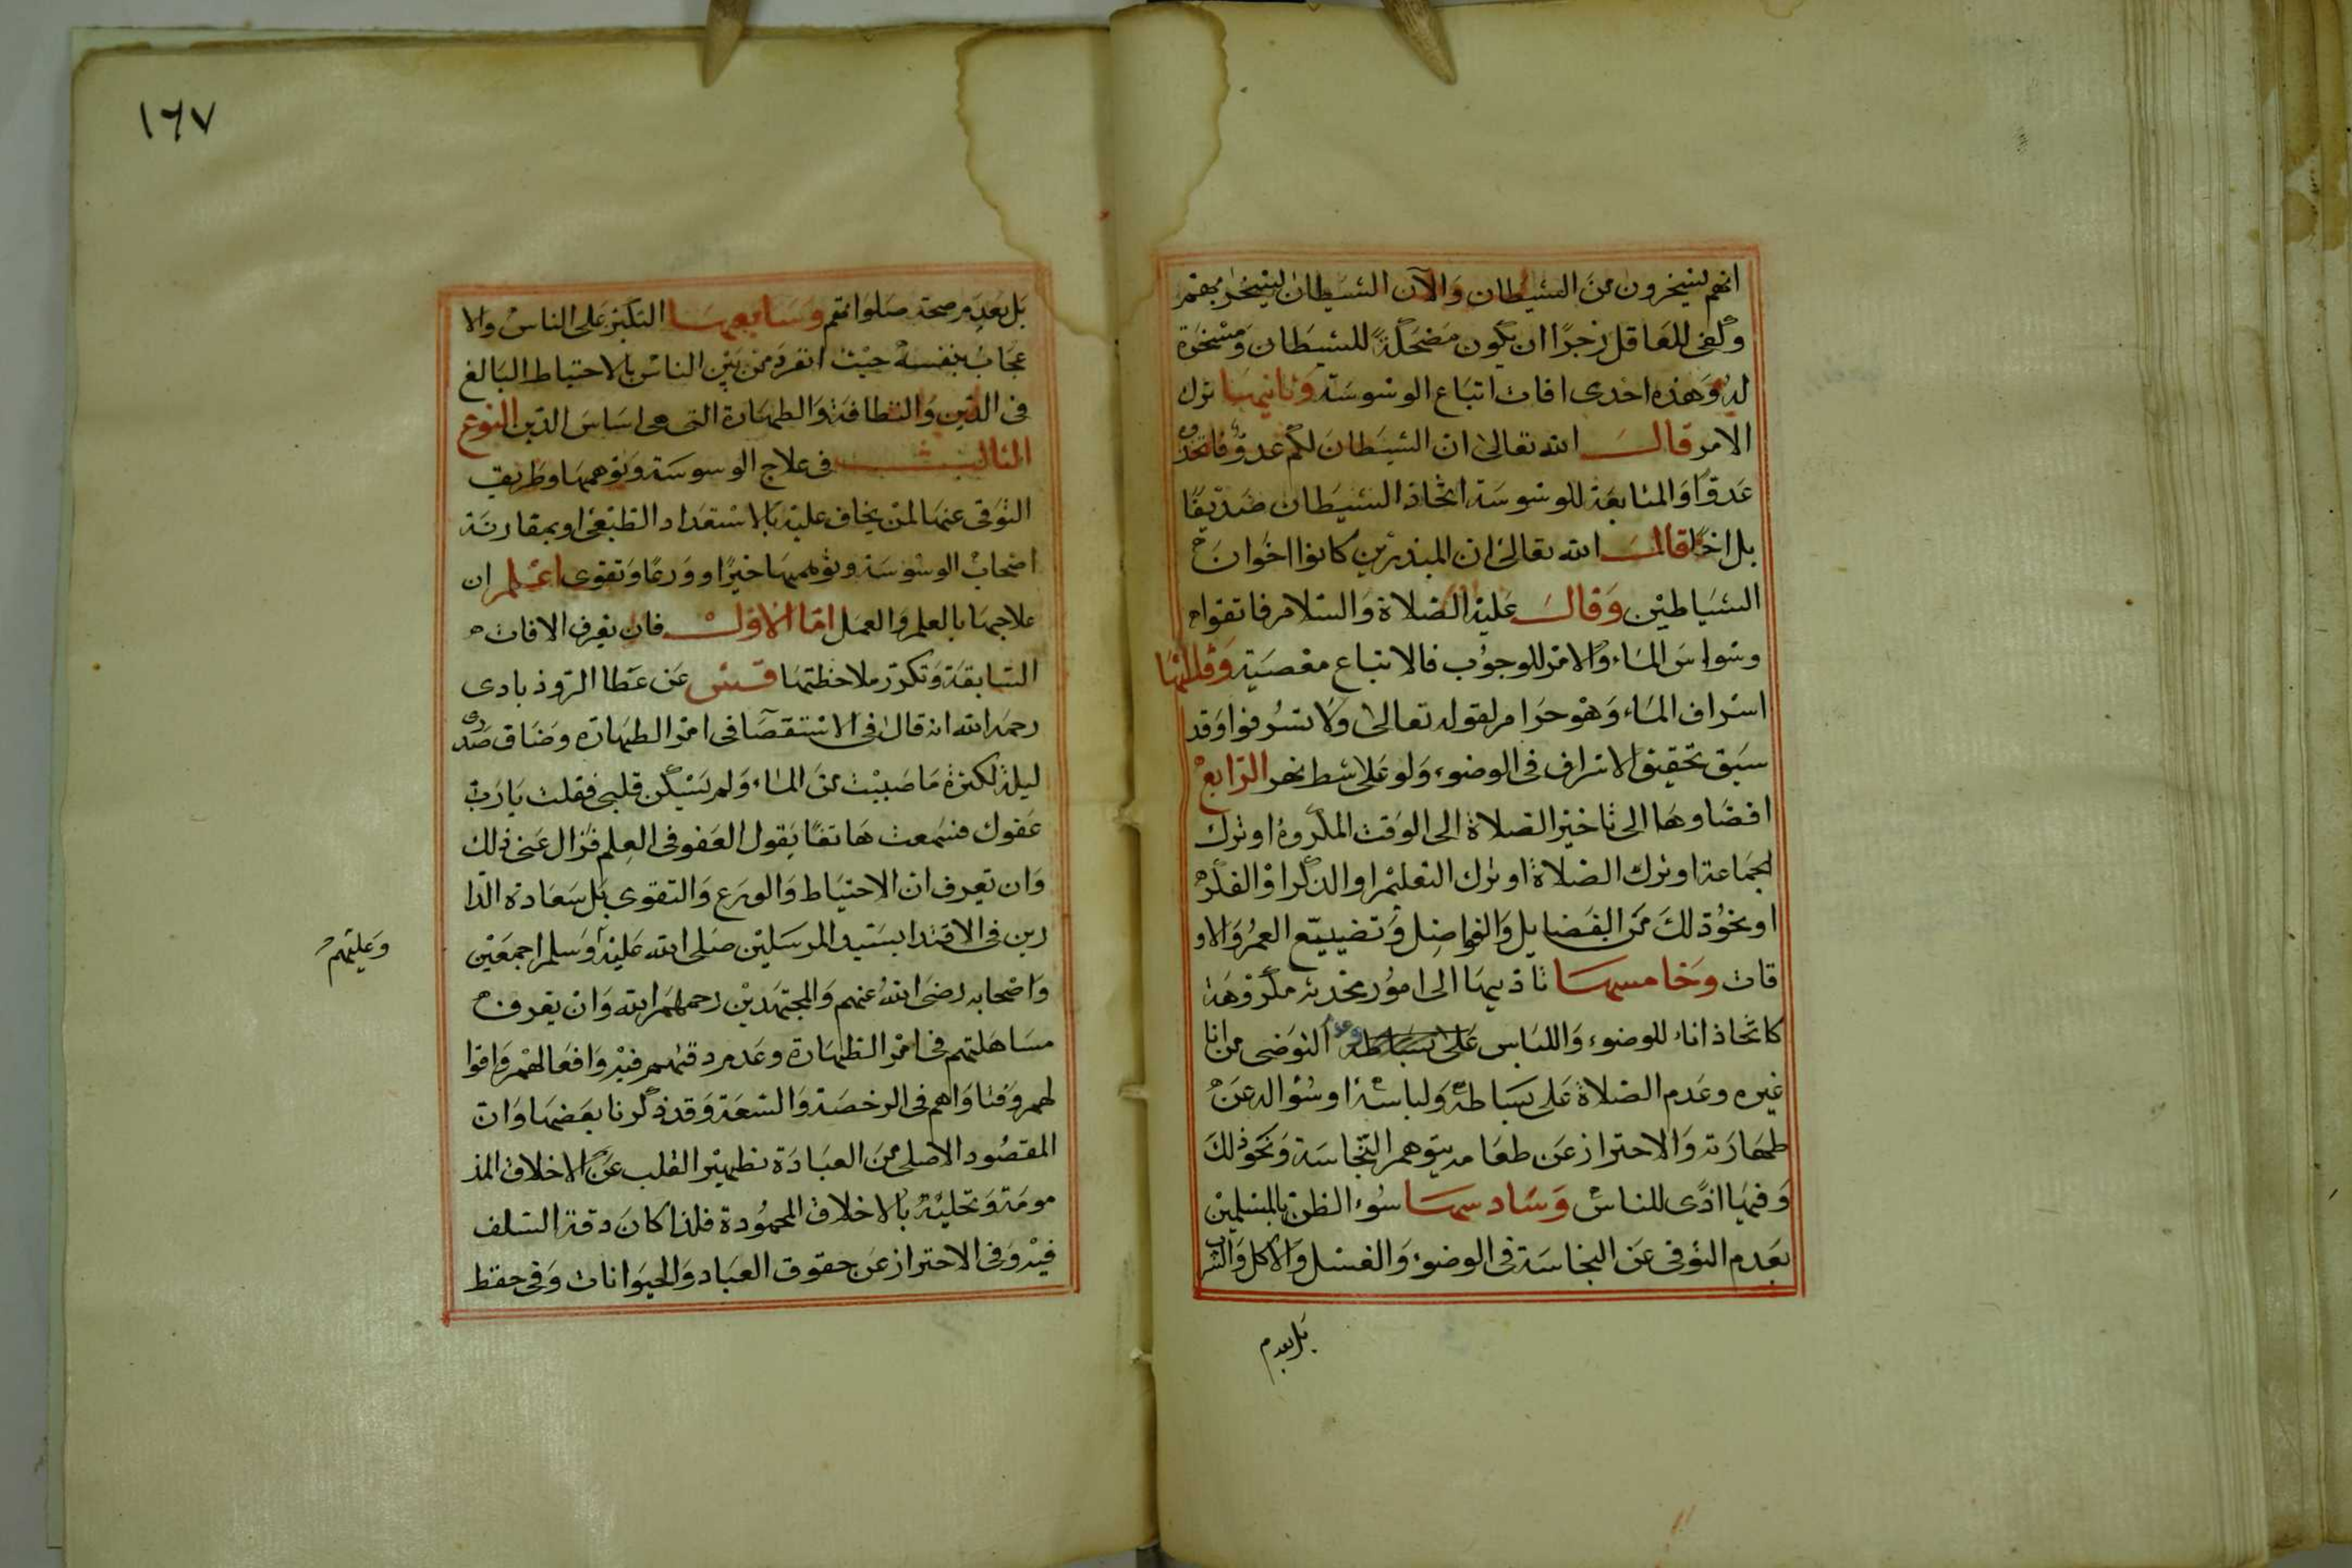 انهم ليسخرون من الشيطان والآن الشيطان ليسخر بهم
وكفى للعاقل زجرًا ان يكون مضحكة للشيطان ومسخرة
له وهذه احدى افات اتباع الوسوسة وثانيها ترك
الامر قال الله تعالى ان الشيطان لكم عدو فاتخذوه
عدوًا والمتابعة للوسوسة اتخاذ الشيطان صديقًا
بل اخًا قال الله تعالى ان المبذرين كانوا اخوان
الشياطين وقال عليه الصلاة والسلام فاتقوا
وسواس الماء والامر للوجوب فالاتباع معصية وثالثها
اسراف الماء وهو حرام لقوله تعالى ولا تسرفوا وقد
سبق تحقيق الاسراف فى الوضوء ولو على شط نهر الرابع
افضاوها الى تاخير الصلاة الى الوقت المكروه او ترك
الجماعة او ترك الصلاة او ترك التعليم او الذكر او الفكر
او نحو ذلك من الفضايل والفواضل وتضييع العمر والاو
قات وخامسها تاديها الى امور محدثه مكروهة
كاتخاذ اناء للوضوء واللباس على بساطه وعدم التوضى من انا
غيره وعدم الصلاة على بساطه ولباسه او سؤاله عن
طهارته والاحتراز عن طعامه بتوهم النجاسة ونحو ذلك
وفيها اذًى للناس وسادسها سوء الظن بالمسلمين
بعدم التوقى عن النجاسة فى الوضوء والغسل والاكل والشرب
بل بعدم
١٦٧
بل بعدم صحة صلواتهم وسابعها التكبر على الناس والا
عجاب بنفسه حيث انفرد من بين الناس بالاحتياط البالغ
فى الدين والنظافة والطهارة التى هى اساس الدين النوع
الثالث فى علاج الوسوسة وتوهمها وطريق
التوقى عنها لمن يخاف عليه بالاستعداد الطبعى او بمقارنة
اصحاب الوسوسة وتوهمها خيرًا وورعًا وتقوى اعلم ان
علاجها بالعلم والعمل اما الاول فان يعرف الافات
السابقة وتكرر ملاحظتها قس عن عطا الروذبادى
رحمه الله انه قال فى الاستقصا فى امر الطهارة وضاق صدرى
ليلة لكثرة ما صببت من الماء ولم يسكن قلبى فقلت يارب
عفوك فسمعت هاتفًا يقول العفو فى العلم فزال عنى ذلك
وان تعرف ان الاحتياط والورع والتقوى بل سعادة الدا
رين فى الاقتدا بسيد المرسلين صلى الله عليه وسلم اجمعين
وعليهم
واصحابه رضى الله عنهم والمجتهدين رحمهم الله وان يعرف
مساهلتهم فى امر الطهارة وعدم دقتهم فيه وافعالهم واقوا
لهم وفتاواهم فى الرخصة والسعة وقد ذكرنا بعضها وان
المقصود الاصلى من العبادة تطهير القلب عن الاخلاق المذ
مومة وتحليته بالاخلاق المحمودة فلذا كان دقة السلف
فيه وفى الاحتراز عن حقوق العباد والحيوانات وفى حفظ